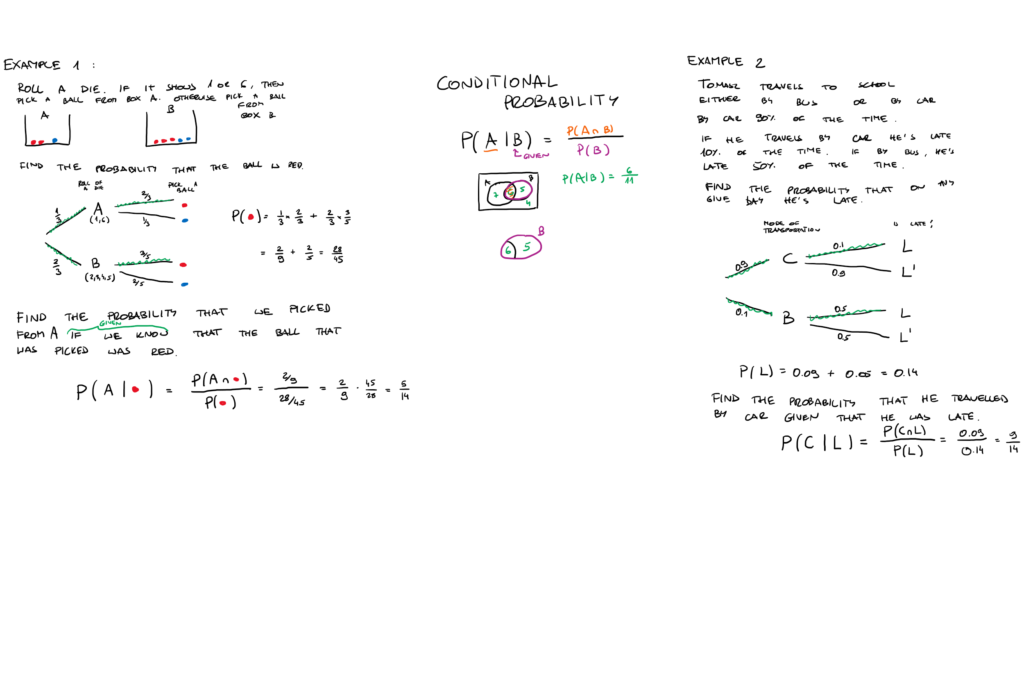 EXAMPLE 1 :
ROLL A DIE. IF IT SHOWS 1 OR 6, THEN
PICK A BALL FROM BOX A. OTHERWISE PICK A BALL
FROM
BOX B
A
B
FIND THE PROBABILITY THAT THE BALL IS RED.
ROLL OF A DIE
PICK A BALL
1/3
A
(1,6)
2/3
1/3
2/3
B
(2,3,4,5)
3/5
2/5
P(●) = 1/3 · 2/3 + 2/3 · 3/5
= 2/9 + 2/5 = 28/45
FIND THE PROBABILITY THAT WE PICKED
GIVEN
FROM A IF WE KNOW THAT THE BALL THAT
WAS PICKED WAS RED.
P(A|●) = P(A∩●)/P(●) = 2/9 / 28/45 = 2/9 · 45/28 = 5/14
CONDITIONAL
PROBABILITY
P(A|B) = P(A∩B)/P(B)
GIVEN
A
B
7
6
5
4
P(A|B) = 6/11
B
6
5
EXAMPLE 2
TOMASZ TRAVELS TO SCHOOL
EITHER BY BUS OR BY CAR
BY CAR 90% OF THE TIME.
IF HE TRAVELS BY CAR HE'S LATE
10% OF THE TIME. IF BY BUS, HE'S
LATE 50% OF THE TIME.
FIND THE PROBABILITY THAT ON ANY
GIVE DAY HE'S LATE.
MODE OF
TRANSPORTATION
IS LATE?
0.9
C
0.1
L
0.9
L'
0.1
B
0.5
L
0.5
L'
P(L) = 0.09 + 0.05 = 0.14
FIND THE PROBABILITY THAT HE TRAVELLED
BY CAR GIVEN THAT HE WAS LATE.
P(C|L) = P(C∩L)/P(L) = 0.09/0.14 = 9/14